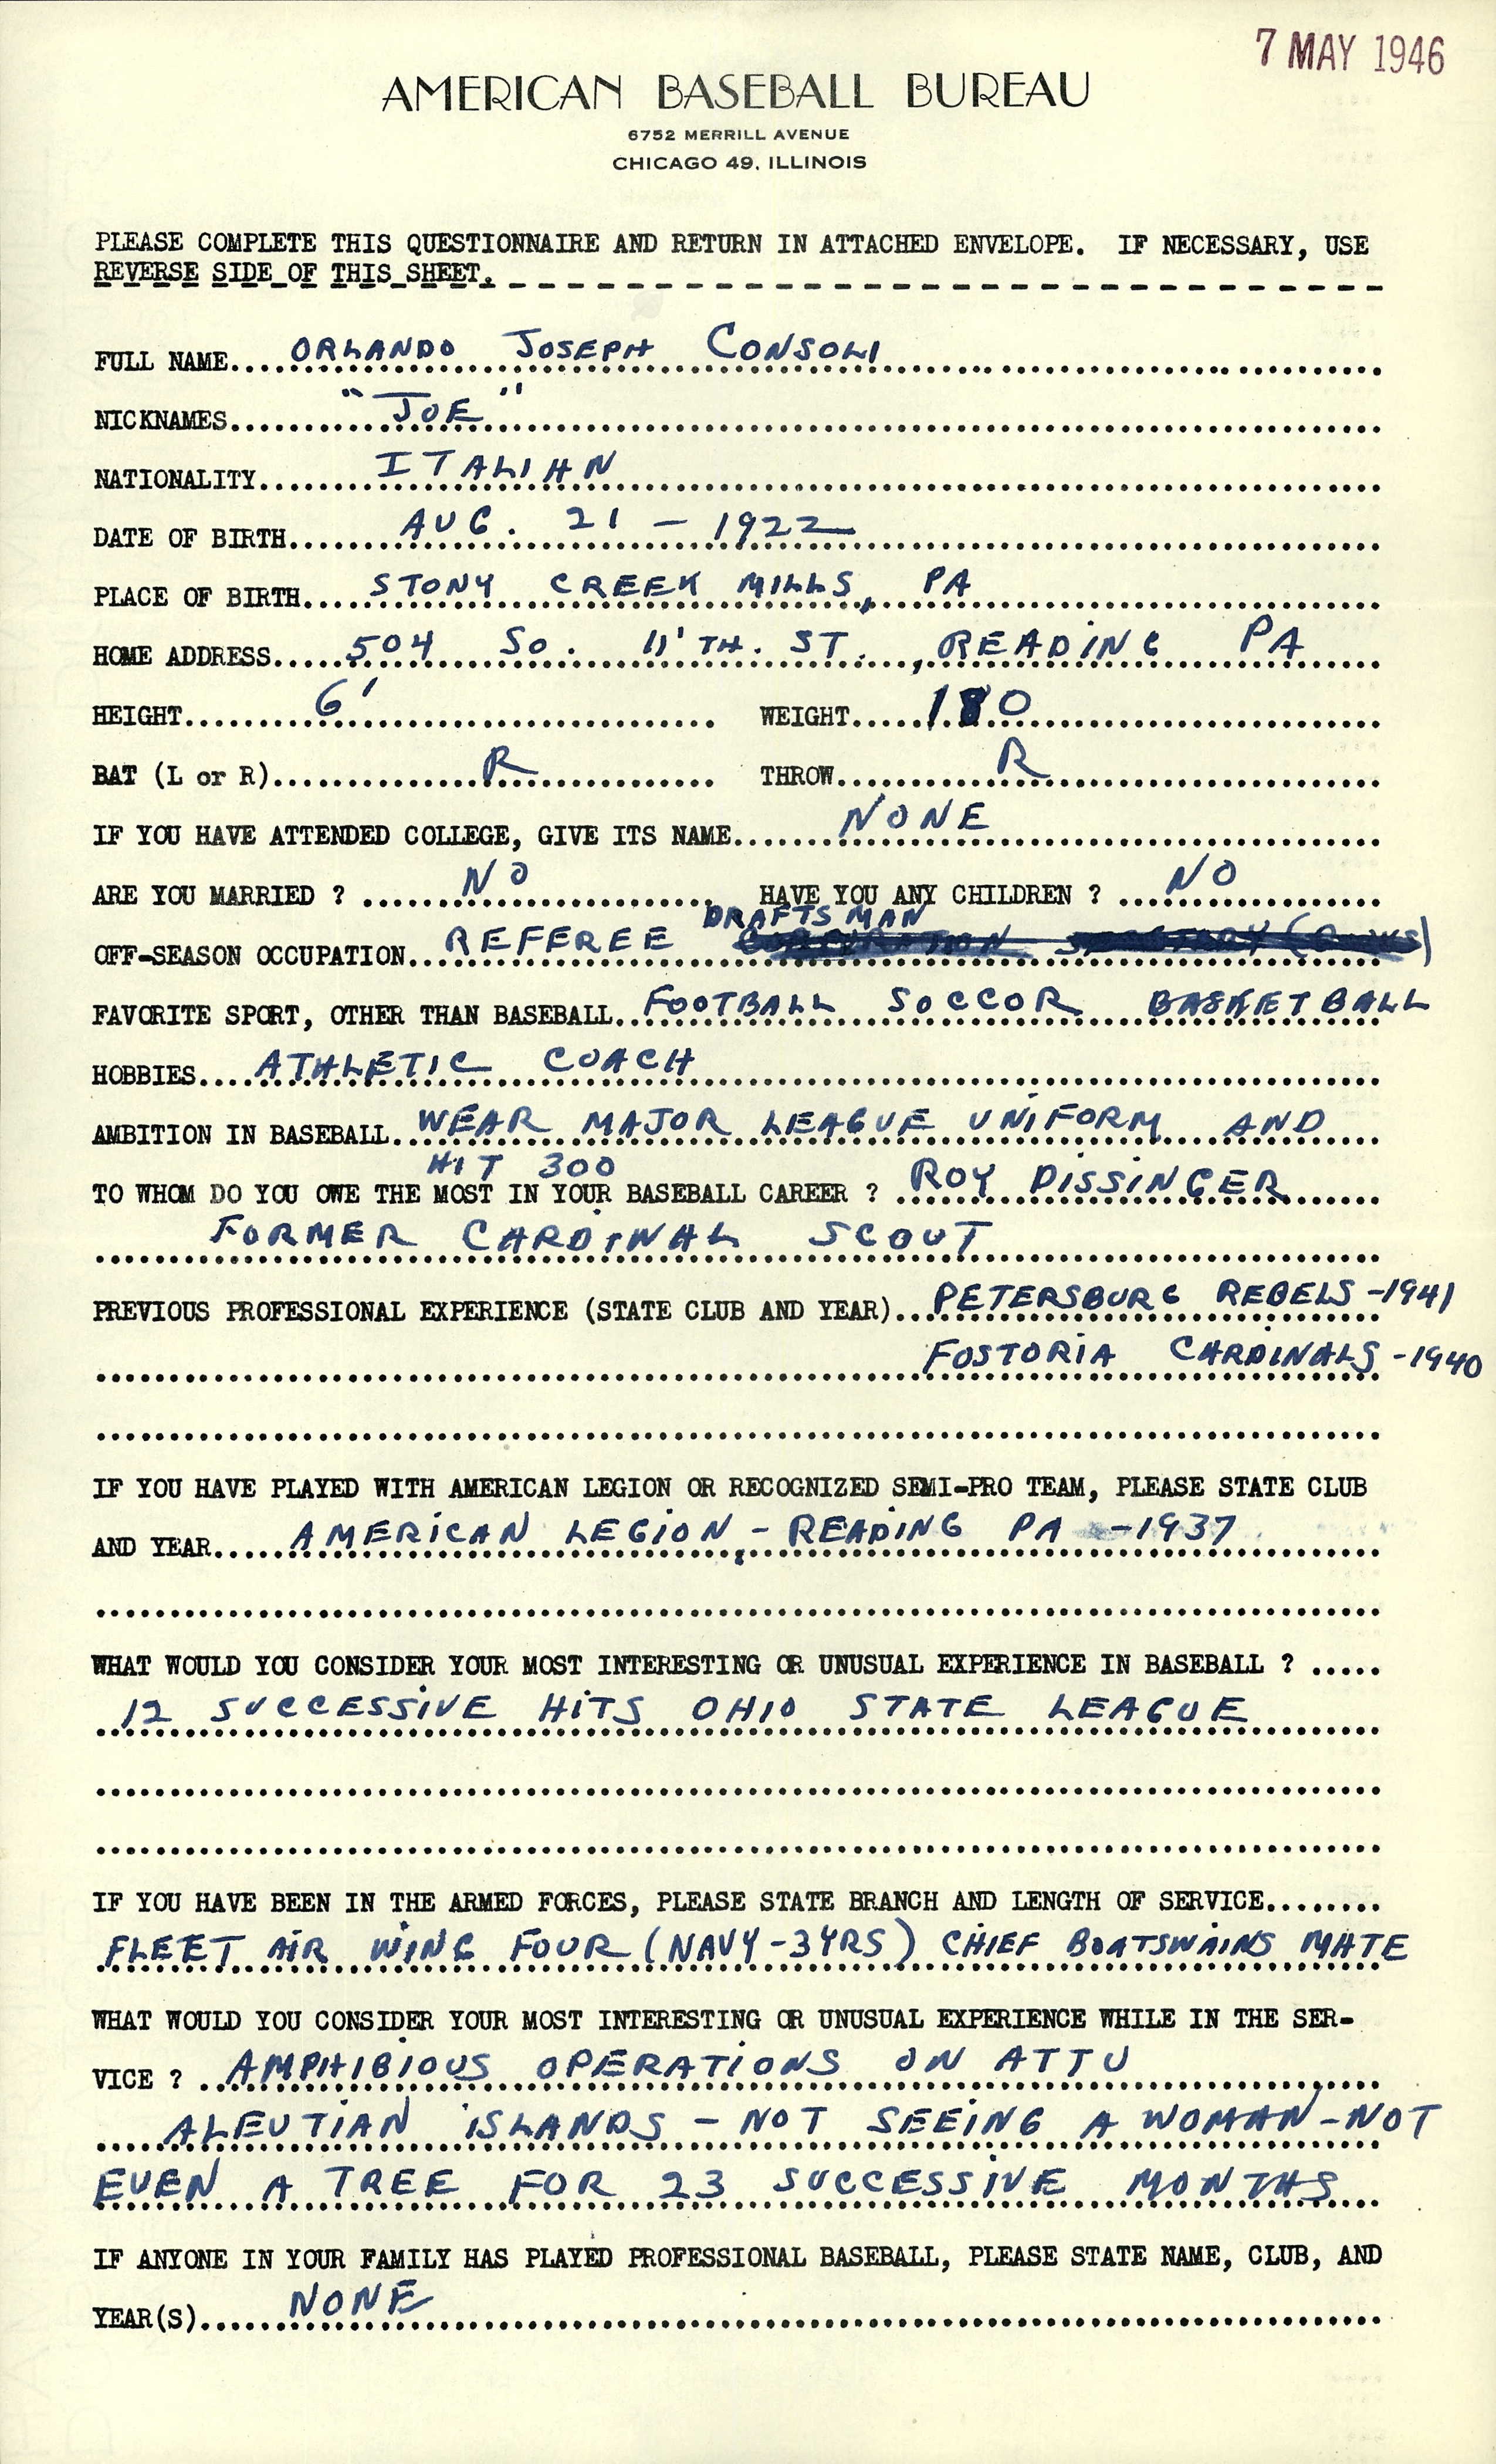 7 MAY 1946
AMERICAN BASEBALL BUREAU
6752 MERRILL AVENUE
CHICAGO 49, ILLINOIS
PLEASE COMPLETE THIS QUESTIONNAIRE AND RETURN IN ATTACHED ENVELOPE. IF NECESSARY, USE
REVERSE SIDE OF THIS SHEET.
FULL NAME.... ORLANDO JOSEPH CONSOLI
NICKNAMES.... "JOE"
NATIONALITY.... ITALIAN
DATE OF BIRTH.... AUG. 21 - 1922
PLACE OF BIRTH.... STONY CREEK MILLS, PA
HOME ADDRESS.... 504 SO. 11'TH. ST., READING PA
HEIGHT.... 6' WEIGHT.... 180
BAT (L or R).... R THROW.... R
IF YOU HAVE ATTENDED COLLEGE, GIVE ITS NAME.... NONE
ARE YOU MARRIED ? .... NO HAVE YOU ANY CHILDREN ? .... NO
OFF-SEASON OCCUPATION.... REFEREE DRAFTSMAN
FAVORITE SPORT, OTHER THAN BASEBALL.. FOOTBALL SOCCOR BASKETBALL
HOBBIES.... ATHLETIC COACH
AMBITION IN BASEBALL.. WEAR MAJOR LEAGUE UNIFORM AND
HIT 300
TO WHOM DO YOU OWE THE MOST IN YOUR BASEBALL CAREER ? .. ROY DISSINGER
FORMER CARDINAL SCOUT
PREVIOUS PROFESSIONAL EXPERIENCE (STATE CLUB AND YEAR).. PETERSBURG REBELS -1941
FOSTORIA CARDINALS -1940
IF YOU HAVE PLAYED WITH AMERICAN LEGION OR RECOGNIZED SEMI-PRO TEAM, PLEASE STATE CLUB
AND YEAR.... AMERICAN LEGION - READING PA -1937
WHAT WOULD YOU CONSIDER YOUR MOST INTERESTING OR UNUSUAL EXPERIENCE IN BASEBALL ? .....
12 SUCCESSIVE HITS OHIO STATE LEAGUE
IF YOU HAVE BEEN IN THE ARMED FORCES, PLEASE STATE BRANCH AND LENGTH OF SERVICE........
FLEET AIR WING FOUR (NAVY-3YRS) CHIEF BOATSWAINS MATE
WHAT WOULD YOU CONSIDER YOUR MOST INTERESTING OR UNUSUAL EXPERIENCE WHILE IN THE SER-
VICE ? .. AMPHIBIOUS OPERATIONS ON ATTU
ALEUTIAN ISLANDS - NOT SEEING A WOMAN - NOT
EVEN A TREE FOR 23 SUCCESSIVE MONTHS
IF ANYONE IN YOUR FAMILY HAS PLAYED PROFESSIONAL BASEBALL, PLEASE STATE NAME, CLUB, AND
YEAR(S).... NONE